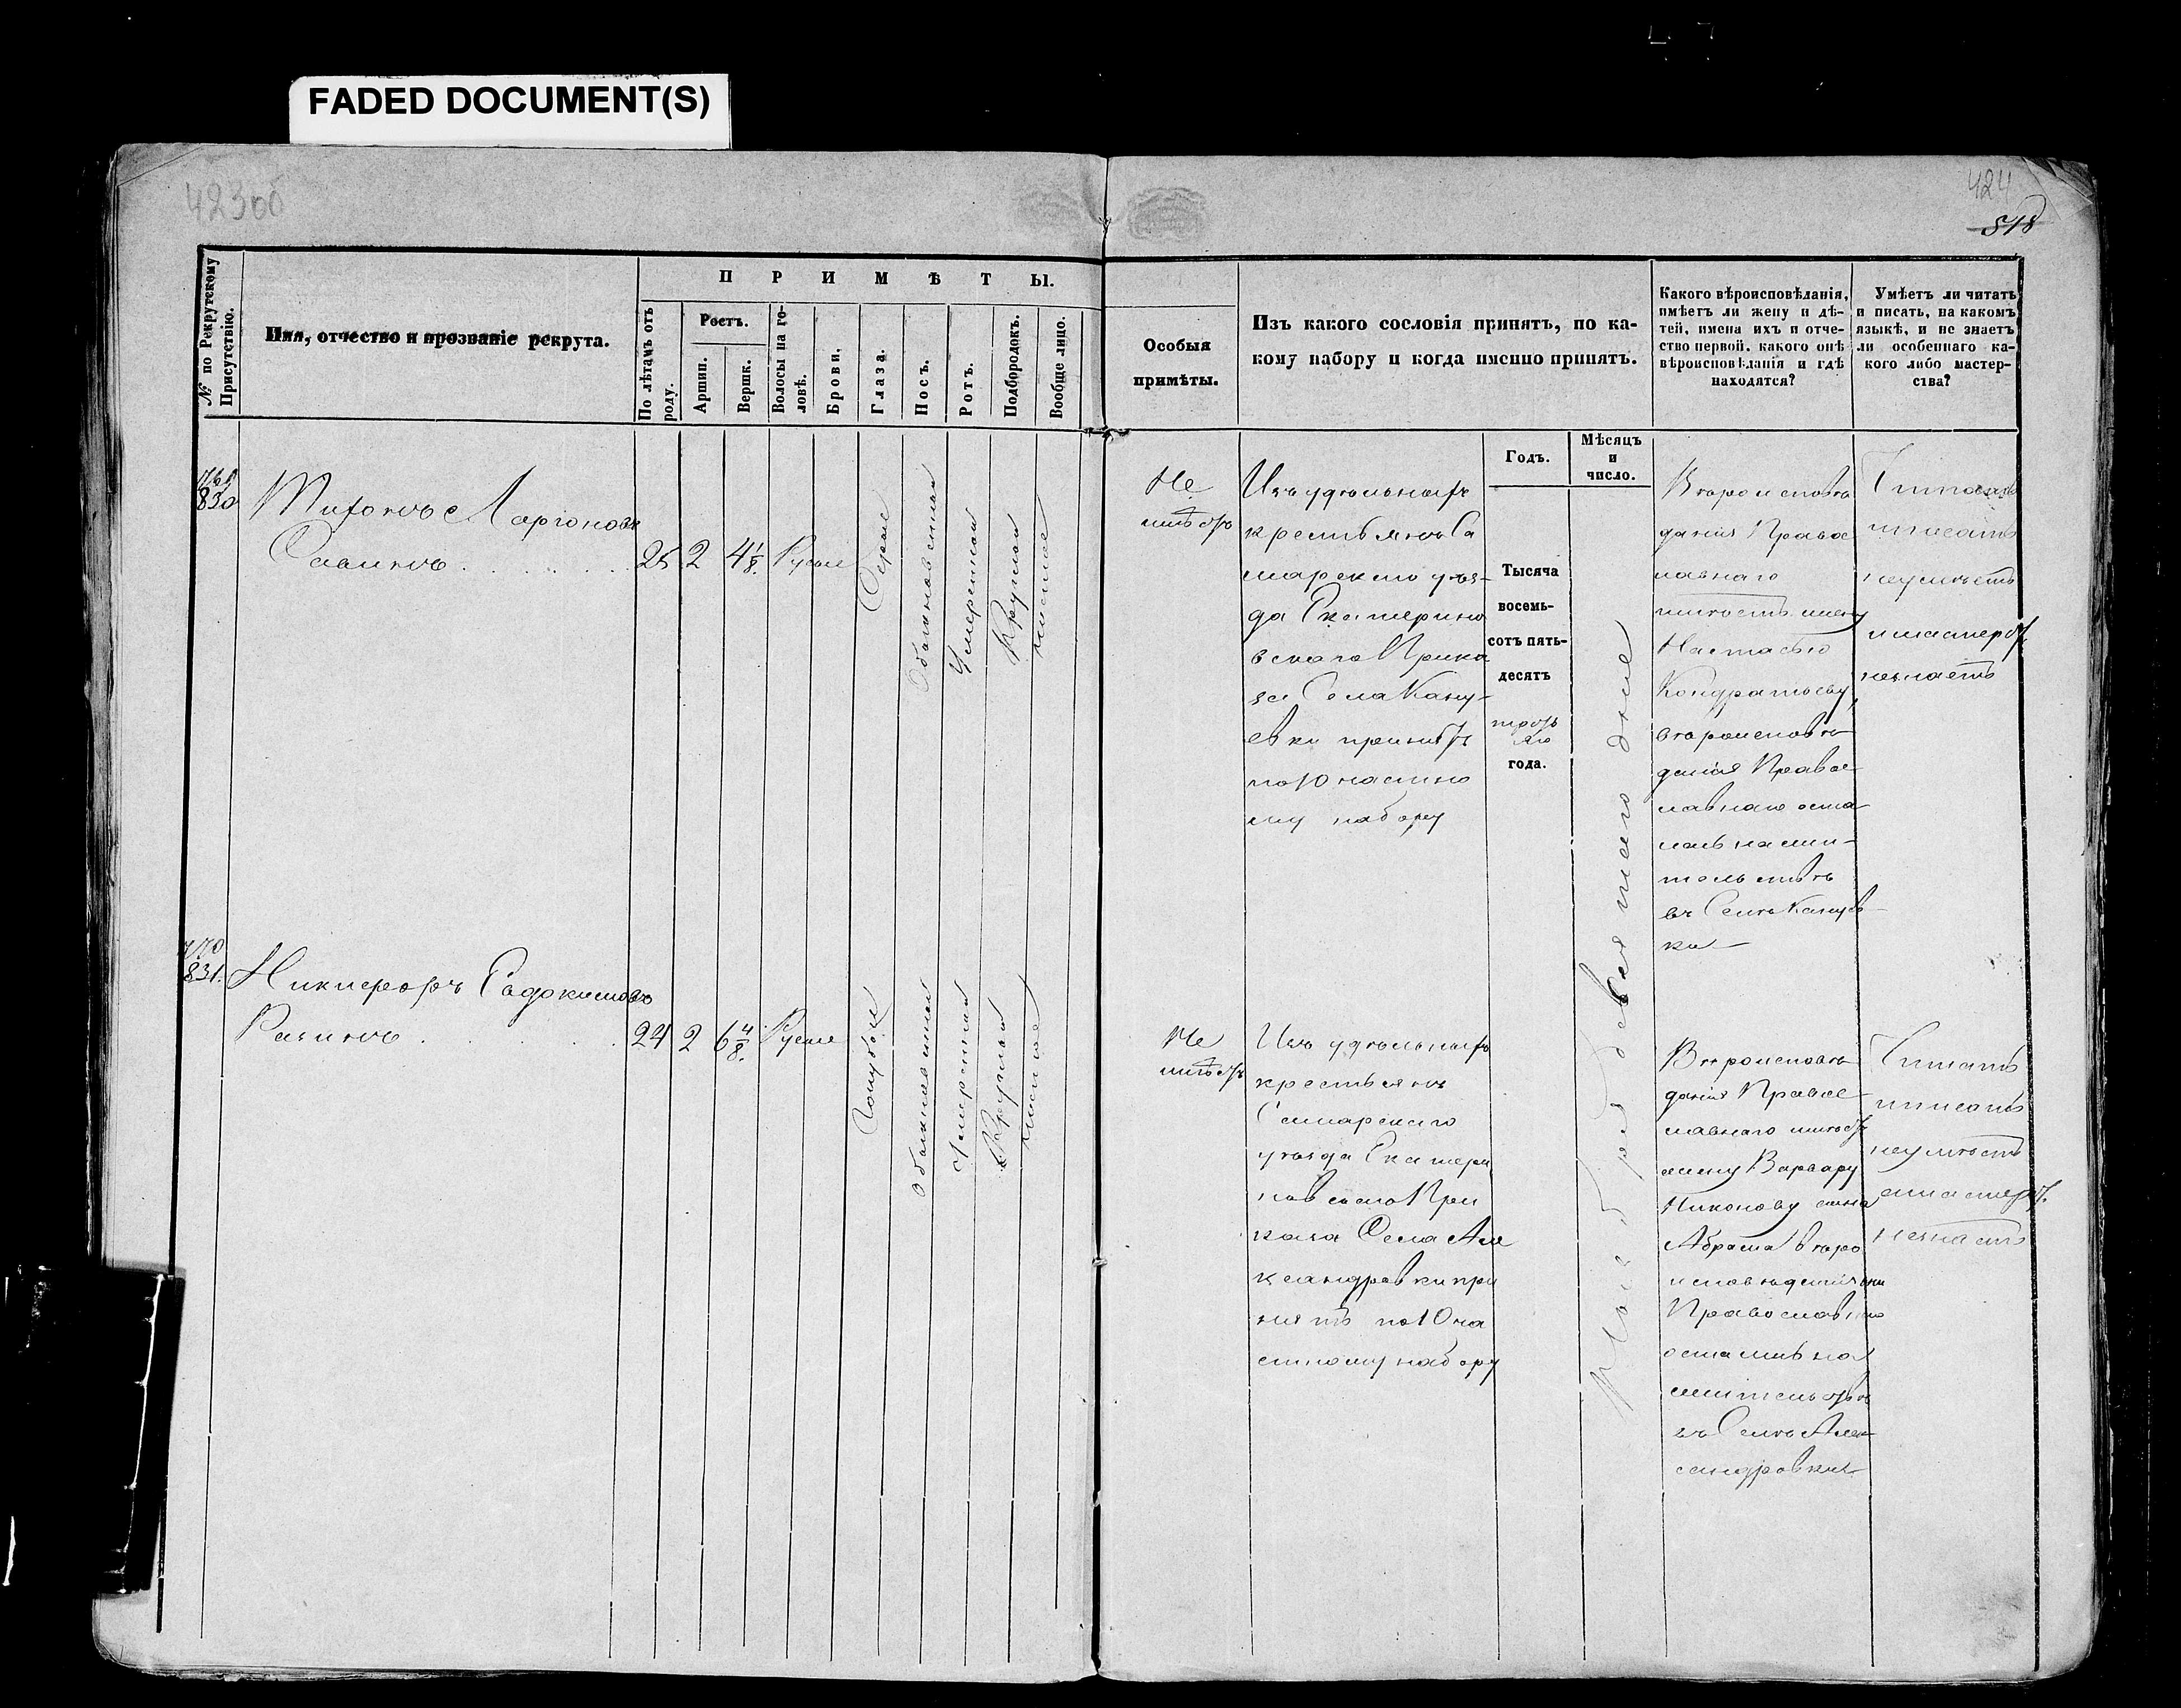 FADED DOCUMENT(S)
423об
424
518
№ по Рекрутскому Присутствію.
Имя, отчество и прозваніе рекрута.
ПРИМѢТЫ.
По лѣтамъ отъ роду.
Ростъ.
Аршин.
Вершк.
Волосы на го-
ловѣ.
Брови.
Глаза.
Носъ.
Ротъ.
Подбородокъ.
Вообще лицо.
Особыя
примѣты.
Изъ какого сословія принятъ, по ка-
кому набору и когда именно принятъ.
Какого вѣроисповѣданія,
имѣетъ ли жену и дѣ-
тей, имена ихъ и отче-
ство первой, какого онѣ
вѣроисповѣданія и гдѣ
находятся?
Умѣетъ ли читать
и писать, на какомъ
языкѣ, и не знаетъ
ли особеннаго ка-
кого либо мастер-
ства?
Годъ.
Мѣсяцъ
и
число.
830
Тихонъ Ларионовъ
Савинъ
25 2 4 1/8. Русые
Серые
Обыкновенный
Умеренный
Круглый
чистое
Не
имѣетъ
Изъ удѣльныхъ
крестьянъ Са
марскаго уѣз-
да Екатерино
вскаго Прика
за Села Кану-
евки принятъ
по 10 частно
му набору
Тысяча
восемь-
сотъ пять-
десятъ
третьяго
года.
декабря девятаго дня
Вѣроисповѣ
данія Правос
лавнаго
имѣетъ жену
Настасью
Кондратьеву,
вѣроисповѣ
данія Правос-
лавнаго оста
лась на жи-
тельствѣ
въ Селѣ Кануев-
ки
Читать
писать
неумѣетъ
и мастерст.
незнаетъ
770
831.
Никифоръ Евдокимовъ
Разинъ
24 2 6 4/8. Русые
Голубые
Обыкновенный
Умеренный
Круглый
чистое
Не
имѣетъ
Изъ удѣльныхъ
крестьянъ
Самарскаго
уѣзда Екатери
новскаго При
каза Села Але
ксандровки при
нятъ по 10 ча
стному набору
Вѣроисповѣ
данія Правос-
лавнаго имѣетъ
жену Варвару
Никонову сына
Абрама вѣро
исповѣданія они
Православнаго
остались на
жительствѣ
въ Селѣ Алек-
сандровки
Читать
писать
неумѣетъ
и мастерст.
незнаетъ